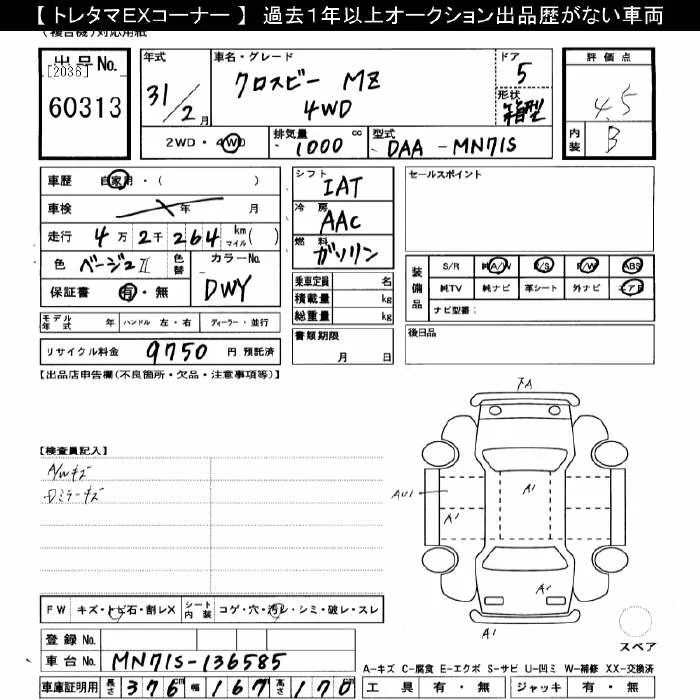 【 トレタマEXコーナー 】 過去1年以上オークション出品歴がない車両
(複合機)対応用紙
出品No.
[2036]
60313
年式
31/2月
車名・グレード
クロスビー MZ
4WD
ドア
5
形状
箱型
評価点
4.5
内装 B
2WD・4WD
排気量 1000 cc
型式 DAA-MN71S
車歴 自家用・( )
車検 年 月
走行 4万2千264 km マイル( )
色 ベージュII 色替
カラーNo.
DWY
保証書 有・無
シフト
IAT
冷房
AAC
燃料
ガソリン
乗車定員 名
積載量 kg
総重量 kg
書類期限
月 日
セールスポイント
装備品
S/R 純A/W P/S P/W ABS
純TV 純ナビ 革シート 外ナビ エアB
ナビ型番:
後日品
モデル年式 年 ハンドル 左・右 ディーラー・並行
リサイクル料金 9750 円 預託済
【出品店申告欄(不良箇所・欠品・注意事項等)】
【検査員記入】
A/Wキズ
Dミラーキズ
FW キズ・トビ石・割レX
シート内装 コゲ・穴・汚レ・シミ・破レ・スレ
登録No.
車台No. MN71S-136585
車庫証明用 長さ 376 幅 167 高さ 170
AU1
A1
A1
A1
A1
スペア
A-キズ C-腐食 E-エクボ S-サビ U-凹ミ W-補修 XX-交換済
工具 有・無 ジャッキ 有・無